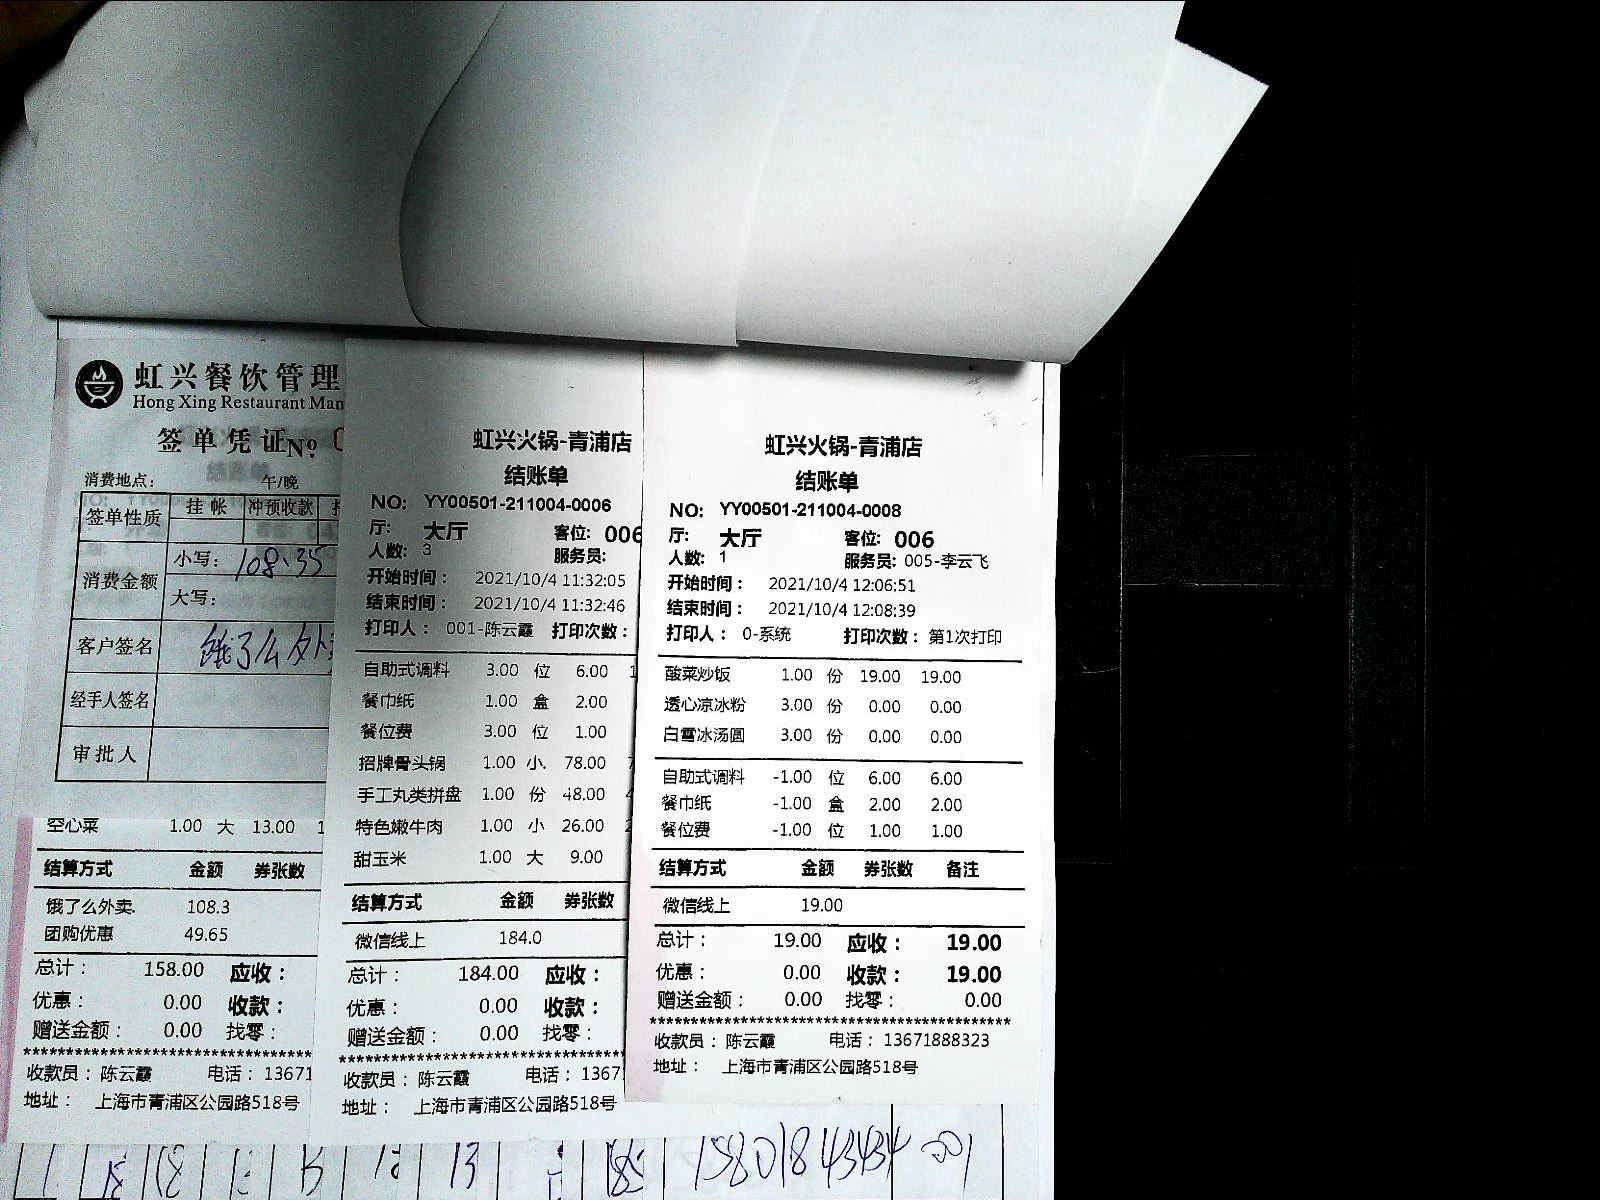 虹兴餐饮管理
Hong Xing Restaurant Man
签单凭证 №
消费地点： 午/晚
签单性质 挂帐 冲预收款
消费金额 小写：108.35
大写：
客户签名 饿了么外
经手人签名
审批人
空心菜 1.00 大 13.00 1
结算方式 金额 券张数
饿了么外卖. 108.3
团购优惠 49.65
总计： 158.00 应收：
优惠： 0.00 收款：
赠送金额： 0.00 找零：
****************************************
收款员：陈云霞 电话：13671
地址： 上海市青浦区公园路518号
虹兴火锅-青浦店
结账单
NO: YY00501-211004-0006
厅: 大厅 客位: 006
人数: 3 服务员:
开始时间： 2021/10/4 11:32:05
结束时间： 2021/10/4 11:32:46
打印人： 001-陈云霞 打印次数：
自助式调料 3.00 位 6.00 1
餐巾纸 1.00 盒 2.00
餐位费 3.00 位 1.00
招牌骨头锅 1.00 小. 78.00
手工丸类拼盘 1.00 份 48.00
特色嫩牛肉 1.00 小 26.00
甜玉米 1.00 大 9.00
结算方式 金额 券张数
微信线上 184.0
总计： 184.00 应收：
优惠： 0.00 收款：
赠送金额： 0.00 找零：
****************************************
收款员：陈云霞 电话：1367
地址： 上海市青浦区公园路518号
虹兴火锅-青浦店
结账单
NO: YY00501-211004-0008
厅: 大厅 客位: 006
人数: 1 服务员: 005-李云飞
开始时间： 2021/10/4 12:06:51
结束时间： 2021/10/4 12:08:39
打印人： 0-系统 打印次数：第1次打印
酸菜炒饭 1.00 份 19.00 19.00
透心凉冰粉 3.00 份 0.00 0.00
白雪冰汤圆 3.00 份 0.00 0.00
自助式调料 -1.00 位 6.00 6.00
餐巾纸 -1.00 盒 2.00 2.00
餐位费 -1.00 位 1.00 1.00
结算方式 金额 券张数 备注
微信线上 19.00
总计： 19.00 应收： 19.00
优惠： 0.00 收款： 19.00
赠送金额： 0.00 找零： 0.00
****************************************
收款员：陈云霞 电话：13671888323
地址： 上海市青浦区公园路518号